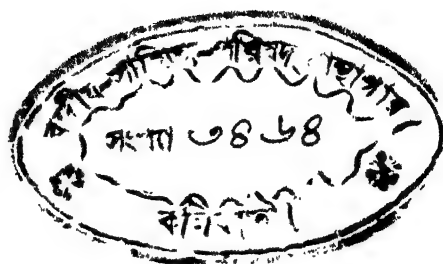 বঙ্গীয়-সাহিত্য-পরিষদ গ্রন্থাগার
সংখ্যা ৩৪৬৪